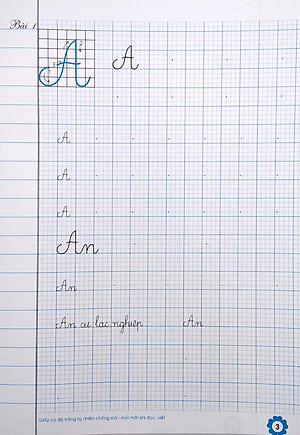 Bài 1
A A
A
A
A
An
An
An cư lạc nghiệp An
Giấy có độ trắng tự nhiên chống loá - mỏi mắt khi đọc, viết
3